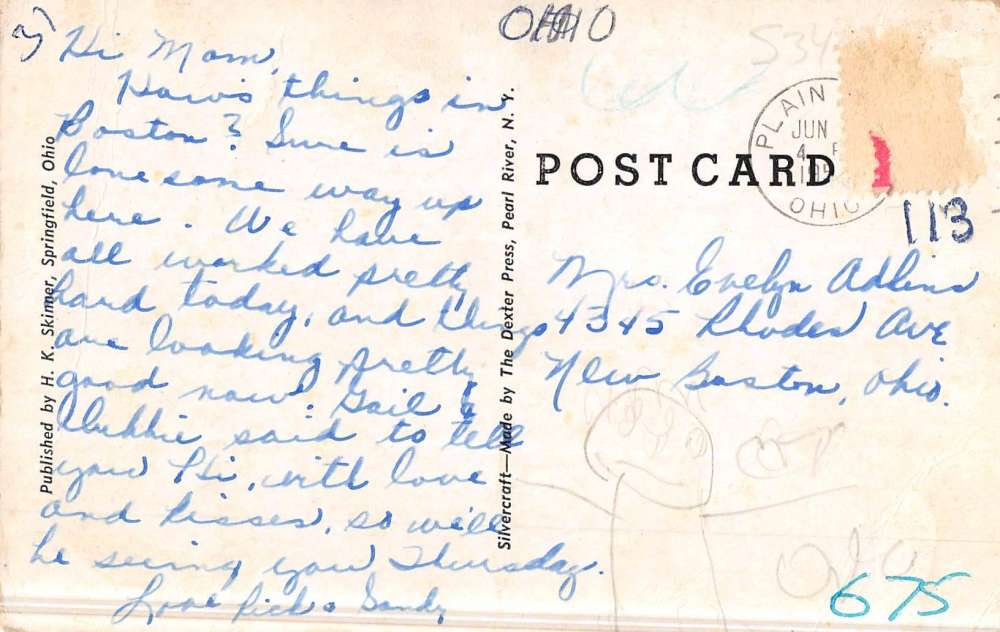 Hi Mom,
Haw's things in
Boston? Sure is
lonesome way up
here. We have
all worked pretty
hard today, and things
are looking pretty
good now. Gail &
Debbie said to tell
you Hi, with love
and kisses, so will
be seeing you Thursday.
Love Rick & Sandy
Published by H. K. Skinner, Springfield, Ohio
Silvercraft—Made by The Dexter Press, Pearl River, N. Y.
OHIO
534
POST CARD
PLAIN
JUN
4
OHIO
113
Mrs. Evelyn Adkins
4345 Rhodes Ave
New Boston, Ohio.
675